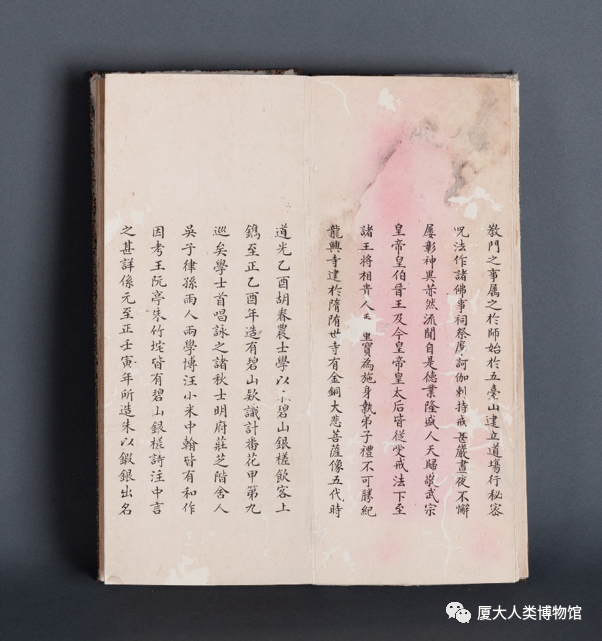 敎門之事属之於師始於五臺山建立道場行秘密
咒法作諸佛事祠祭摩訶伽剌持戒甚嚴晝夜不懈
屢彰神異赫然流聞自是德業隆盛人天歸敬武宗
皇帝皇伯晉王及今皇帝皇太后皆從受戒法下至
諸王將相貴人寶為施身執弟子禮不可勝紀
龍興寺建於隋隋世寺有金銅大悲菩薩像五代時
道光乙酉胡春農士學以碧山銀槎飲客上
鐫至正乙酉年造有碧山款識計番花甲第九
巡矣學士首唱詠之諸秋士明府莊芝階舍人
吳子律孫雨人兩學博汪小米中翰皆有和作
因考王阮亭朱竹垞皆有碧山銀槎詩注中言
之甚詳係元至正壬寅年所造朱以鍜銀出名
厦大人类博物馆